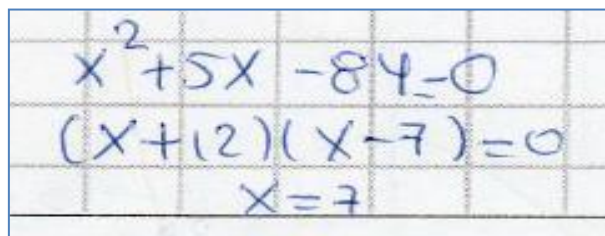 x²+5x-84=0
(x+12)(x-7)=0
x=7